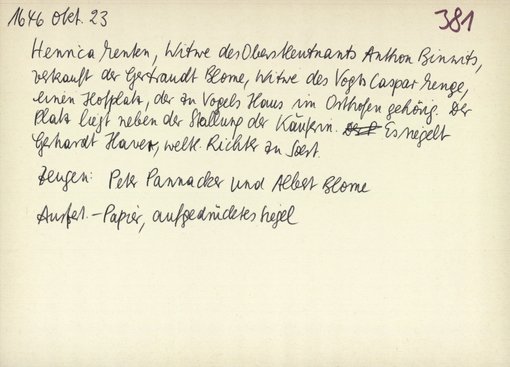 1646 Okt. 23
381
Henrica Menken, Witwe des Obersteutnants Anthon Binnits,
verkauft der Gertraudt Blome, Witwe des Vogts Caspar Menge,
einen Hofplatz, der zu Vogels Haus im Osthofen gehörig. Der
Platz liegt neben der Stallung der Käuferin. Es siegelt
Gerhardt Haver, weltl. Richter zu Soest.
Zeugen: Peter Pannacker und Albert Blome
Ausfert. - Papier, aufgedrücktes Siegel